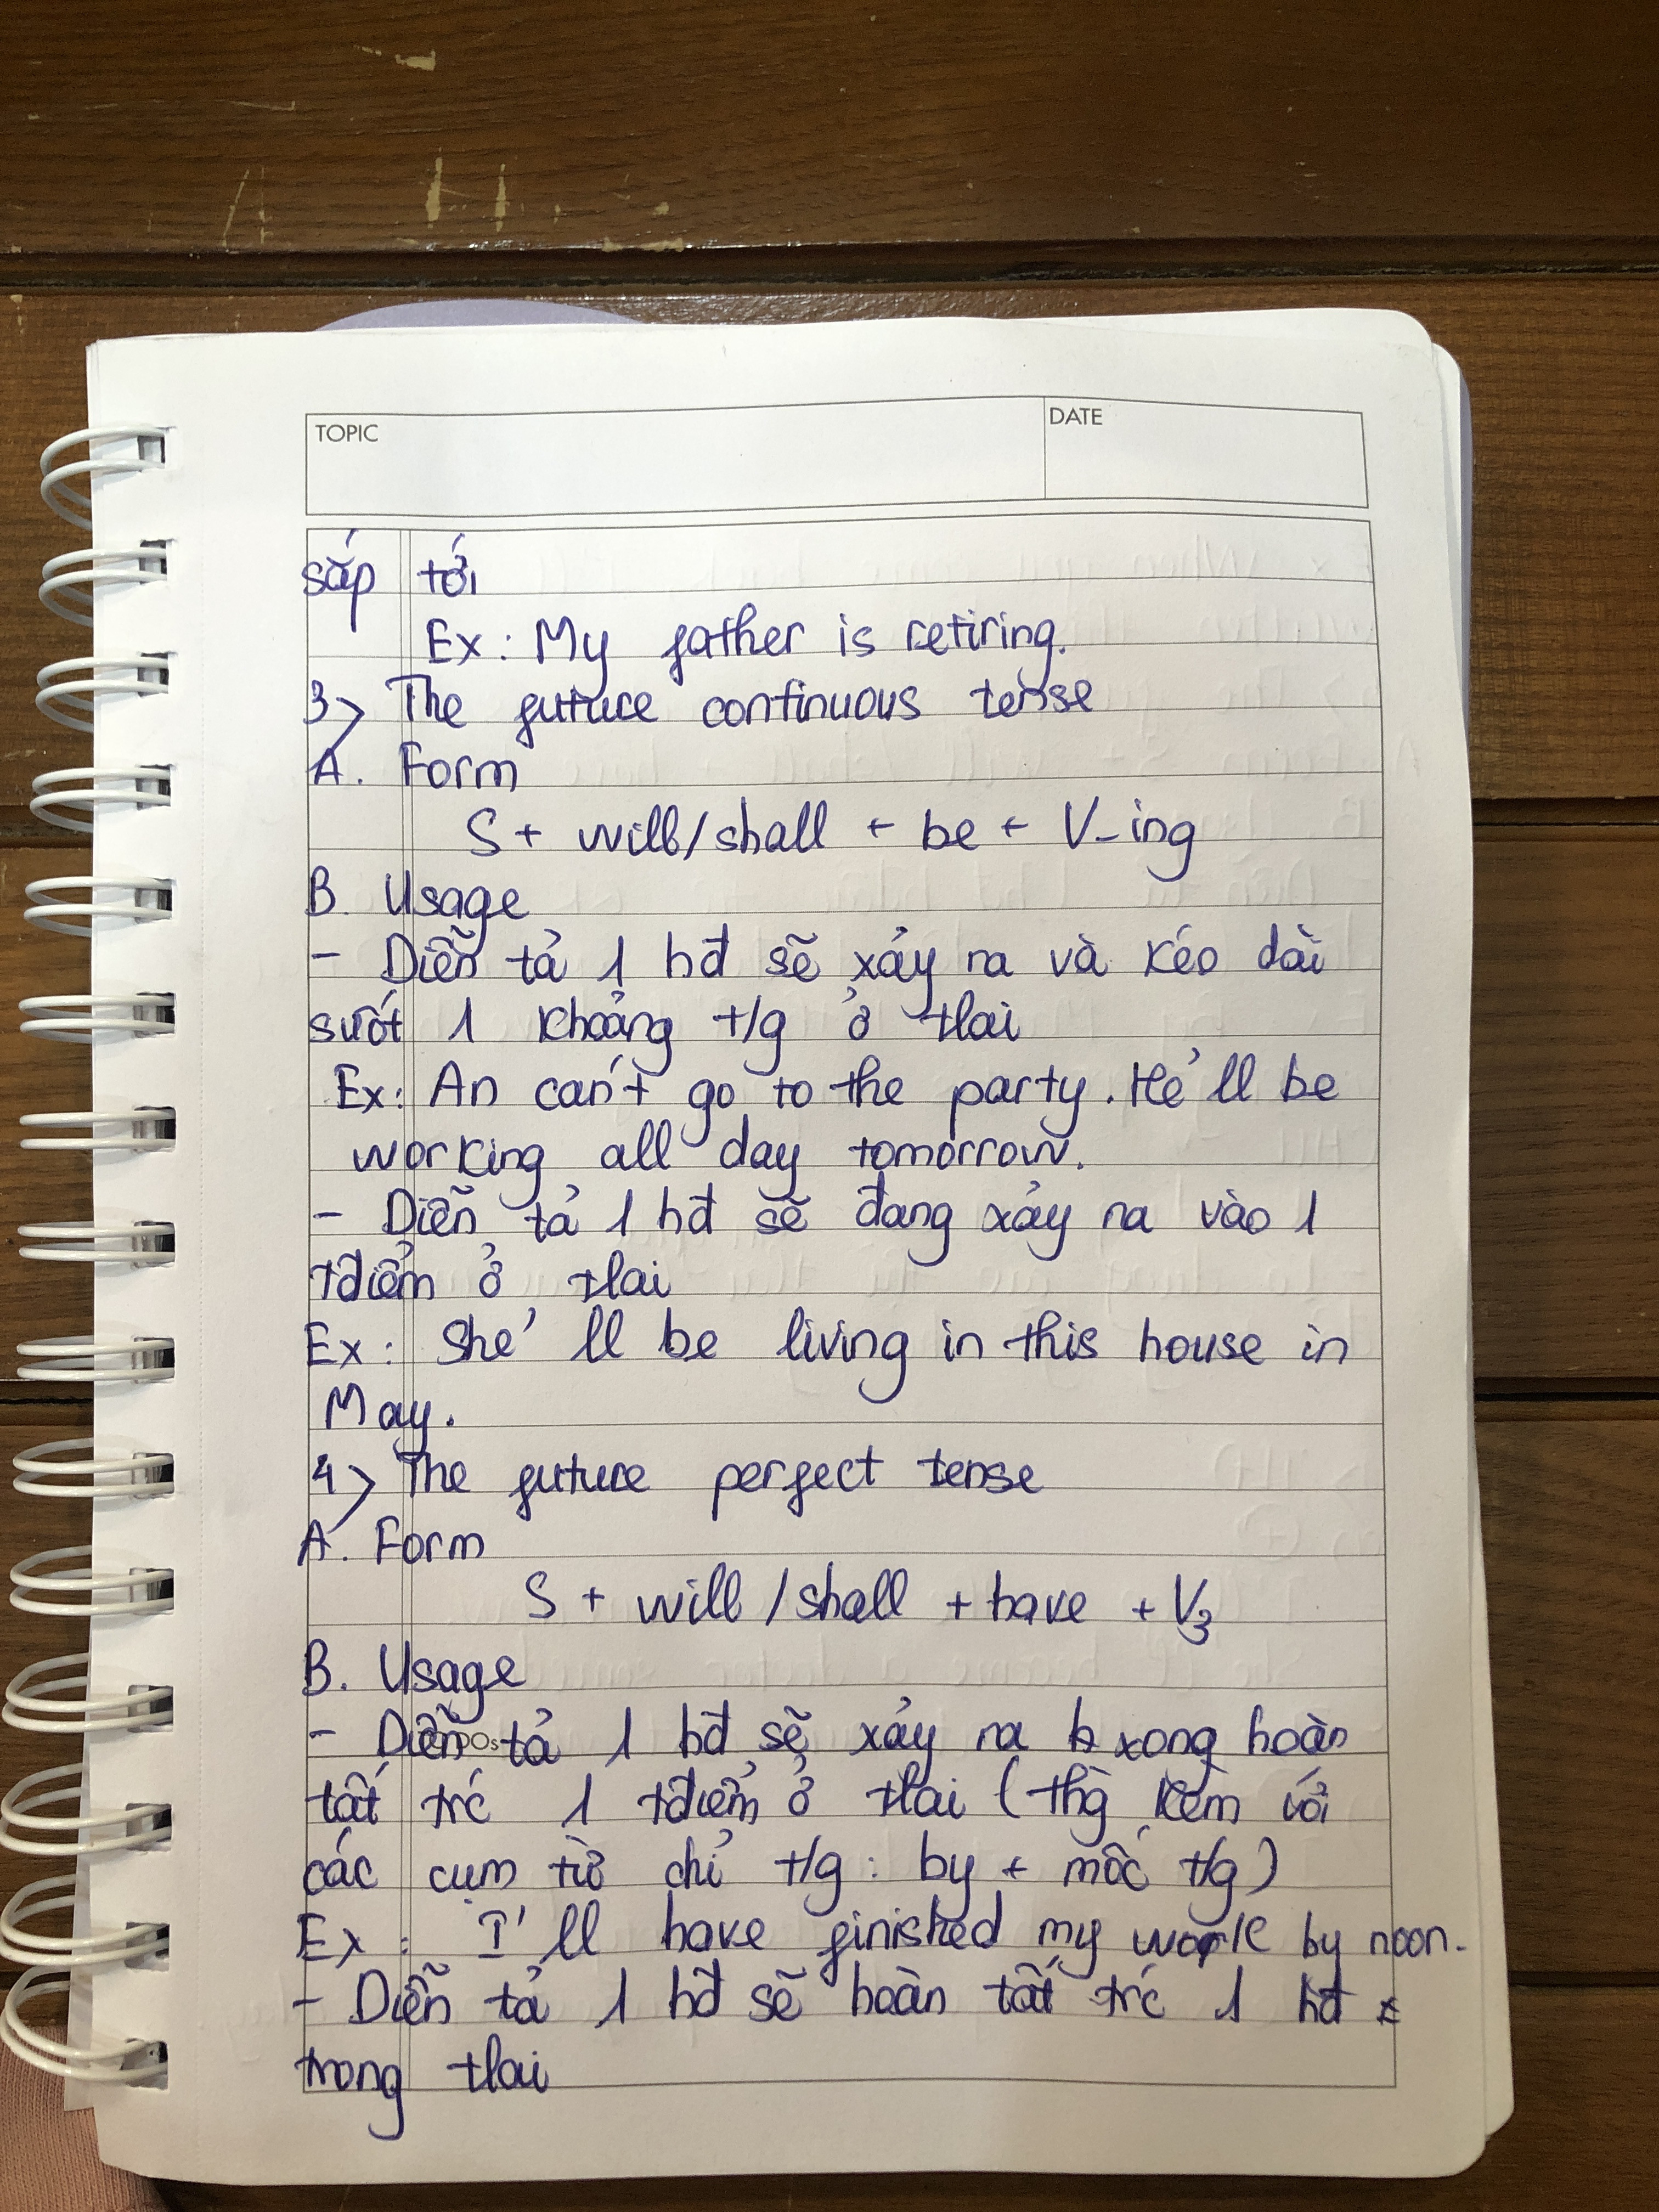 TOPIC
DATE
sắp tới
Ex: My father is retiring.
3> The future continuous tense
A. Form
S + will/shall + be + V-ing
B. Usage
- Diễn tả 1 hđ sẽ xảy ra và kéo dài
suốt 1 khoảng t/g ở tlai
Ex: An can't go to the party. He'll be
working all day tomorrow.
- Diễn tả 1 hđ sẽ đang xảy ra vào 1
tđiểm ở tlai
Ex: She'll be living in this house in
May.
4> The future perfect tense
A. Form
S + will/shall + have + V3
B. Usage
- Diễn tả 1 hđ sẽ xảy ra xong hoàn
tất trc 1 tđiểm ở tlai (thg kèm với
các cụm từ chỉ t/g: by + mốc t/g)
Ex: I'll have finished my work by noon.
- Diễn tả 1 hđ sẽ hoàn tất trc 1 hđ
trong tlai